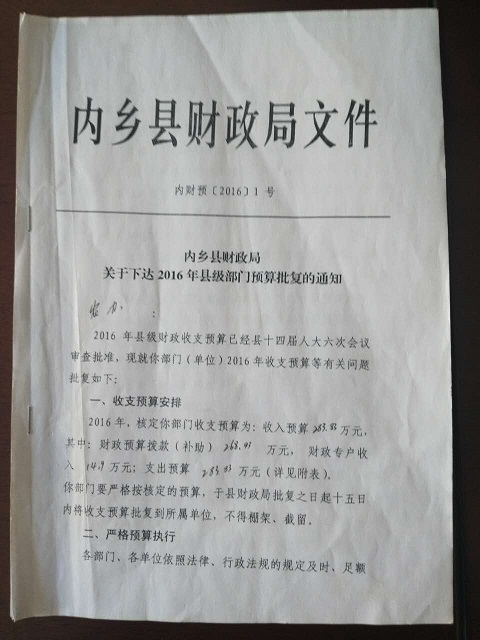 内乡县财政局文件
内财预〔2016〕1 号
内乡县财政局
关于下达 2016 年县级部门预算批复的通知
：
2016 年县级财政收支预算已经县十四届人大六次会议
审查批准，现就你部门（单位）2016 年收支预算等有关问题
批复如下：
一、收支预算安排
2016 年，核定你部门收支预算为：收入预算 283.33 万元，
其中：财政预算拨款（补助）268.41 万元，财政专户收
入 14.9 万元；支出预算 283.33 万元（详见附表）。
你部门要严格按核定的预算，于县财政局批复之日起十五日
内将收支预算批复到所属单位，不得棚架、截留。
二、严格预算执行
各部门、各单位依照法律、行政法规的规定及时、足额